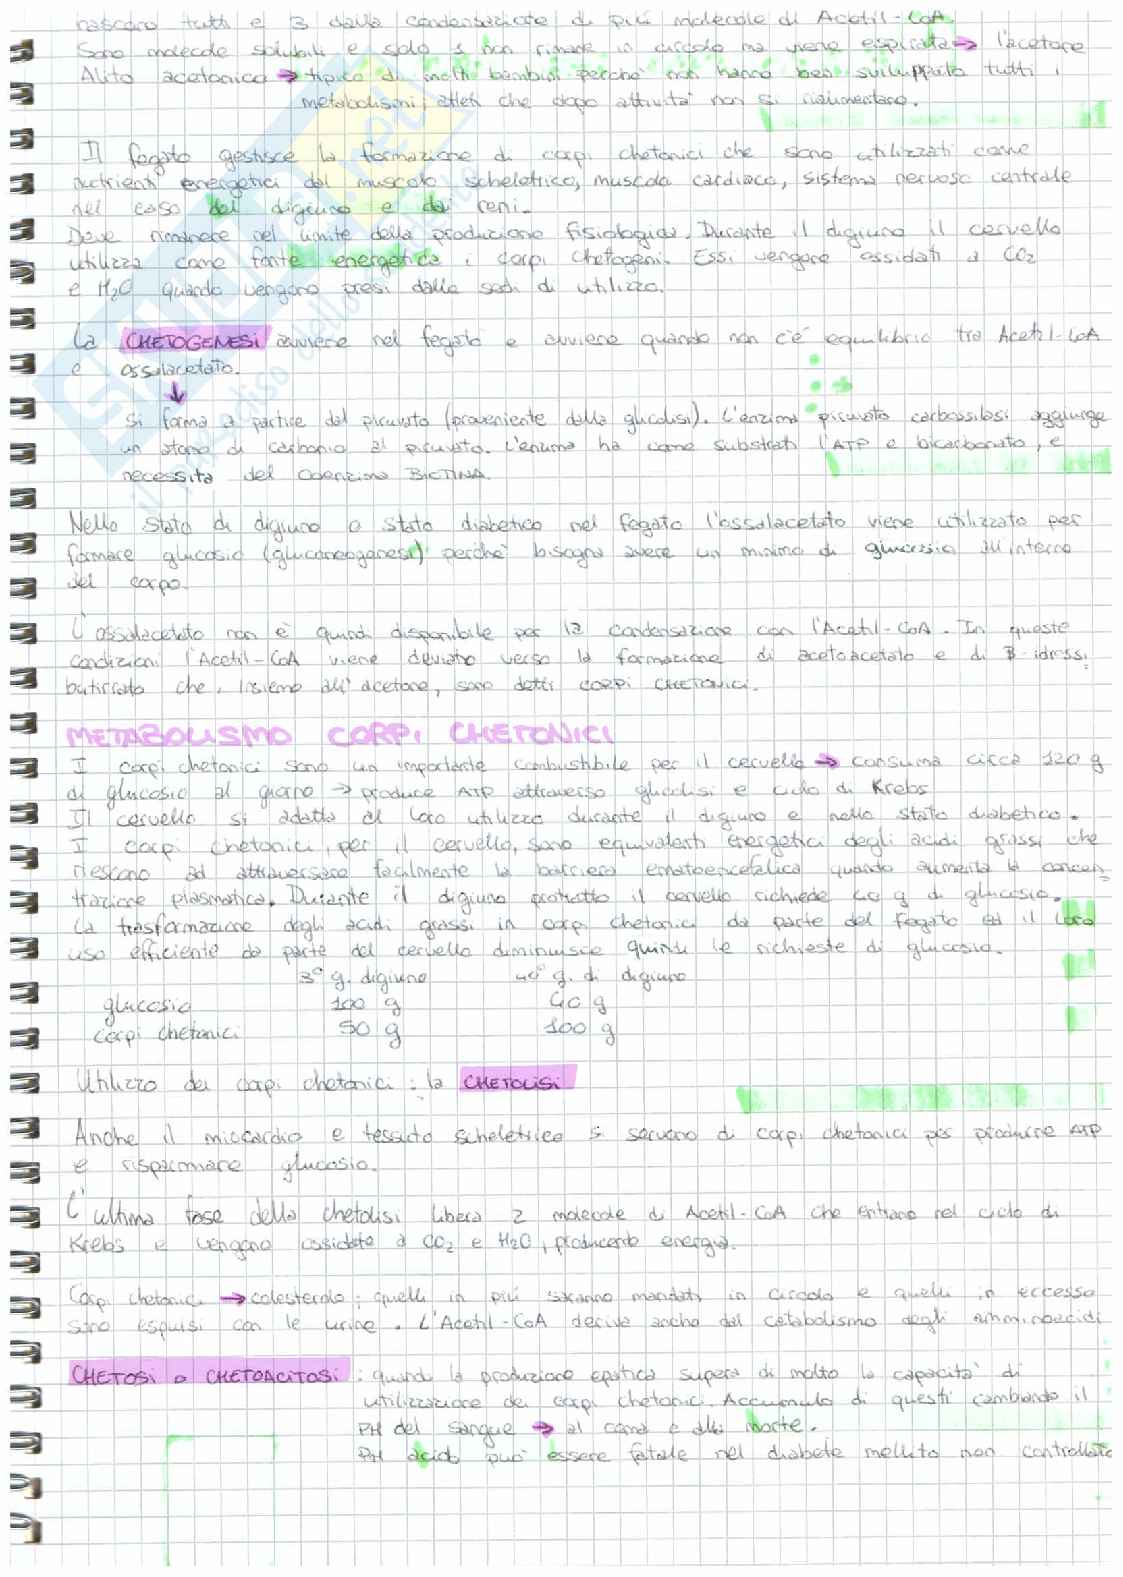 nascono tutti e 3 dalla condensazione di più molecole di Acetil-CoA.
Sono molecole solubili e solo 1 non rimane in circolo ma viene espirata → l'acetone
Alito acetonico → tipico di molti bambini perché non hanno ben sviluppato tutti i
metabolismi; atleti che dopo attività non si rialimentano.
Il fegato gestisce la formazione di corpi chetonici che sono utilizzati come
nutrienti energetici dal muscolo scheletrico, muscolo cardiaco, sistema nervoso centrale
nel caso del digiuno e dai reni.
Deve rimanere nel limite della produzione fisiologica. Durante il digiuno il cervello
utilizza come fonte energetica i corpi chetogeni. Essi vengono ossidati a CO2
e H2O quando vengono presi dalle sedi di utilizzo.
La CHETOGENESI avviene nel fegato e avviene quando non c'è equilibrio tra Acetil-CoA
e ossalacetato.
↓
Si forma a partire dal piruvato (proveniente dalla glicolisi). L'enzima piruvato carbossilasi aggiunge
un atomo di carbonio al piruvato. L'enzima ha come substrati l'ATP e bicarbonato, e
necessita del coenzima BIOTINA.
Nello stato di digiuno o stato diabetico nel fegato l'ossalacetato viene utilizzato per
formare glucosio (gluconeogenesi) perché bisogna avere un minimo di glucosio all'interno
del corpo.
L'ossalacetato non è quindi disponibile per la condensazione con l'Acetil-CoA. In queste
condizioni l'Acetil-CoA viene deviato verso la formazione di acetoacetato e di β-idrossi
butirrato che, insieme all'acetone, sono detti CORPI CHETONICI.
METABOLISMO CORPI CHETONICI
I corpi chetonici sono un importante combustibile per il cervello → consuma circa 120 g
di glucosio al giorno → produce ATP attraverso glicolisi e ciclo di Krebs
Il cervello si adatta al loro utilizzo durante il digiuno e nello stato diabetico.
I corpi chetonici, per il cervello, sono equivalenti energetici degli acidi grassi che
riescono ad attraversare facilmente la barriera ematoencefalica quando aumenta la concen-
trazione plasmatica. Durante il digiuno protratto il cervello richiede 40 g di glucosio.
La trasformazione degli acidi grassi in corpi chetonici da parte del fegato ed il loro
uso efficiente da parte del cervello diminuisce quindi le richieste di glucosio.
3° g. digiuno 40° g. di digiuno
glucosio 100 g 40 g
corpi chetonici 50 g 100 g
Utilizzo dei corpi chetonici: la CHETOLISI
Anche il miocardio e tessuto scheletrico si servono di corpi chetonici per produrre ATP
e risparmiare glucosio.
L'ultima fase della chetolisi libera 2 molecole di Acetil-CoA che entrano nel ciclo di
Krebs e vengono ossidate a CO2 e H2O, producendo energia.
Corpi chetonici → colesterolo; quelli in più saranno mandati in circolo e quelli in eccesso
sono espulsi con le urine. L'Acetil-CoA deriva anche dal catabolismo degli amminoacidi
CHETOSI o CHETOACITOSI: quando la produzione epatica supera di molto la capacità di
utilizzazione dei corpi chetonici. Accumulo di questi cambiando il
PH del sangue → al coma e alla morte.
PH acido può essere fatale nel diabete mellito non controllato